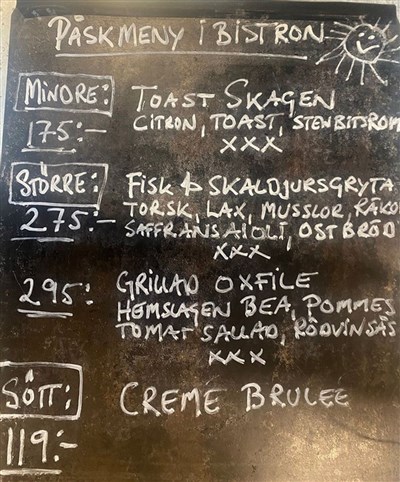 PÅSKMENY I BISTRON
MINDRE: TOAST SKAGEN
175:- CITRON, TOAST, STENBITSROM
XXX
STÖRRE: FISK & SKALDJURSGRYTA
275:- TORSK, LAX, MUSSLOR, RÄKO
SAFFRANSAIOLI, OSTBRÖD
XXX
295: GRILLAD OXFILE
HEMSLAGEN BEA, POMMES
TOMAT SALLAD, RÖDVINSÅS
XXX
SÖTT: CREME BRULEE
119:-